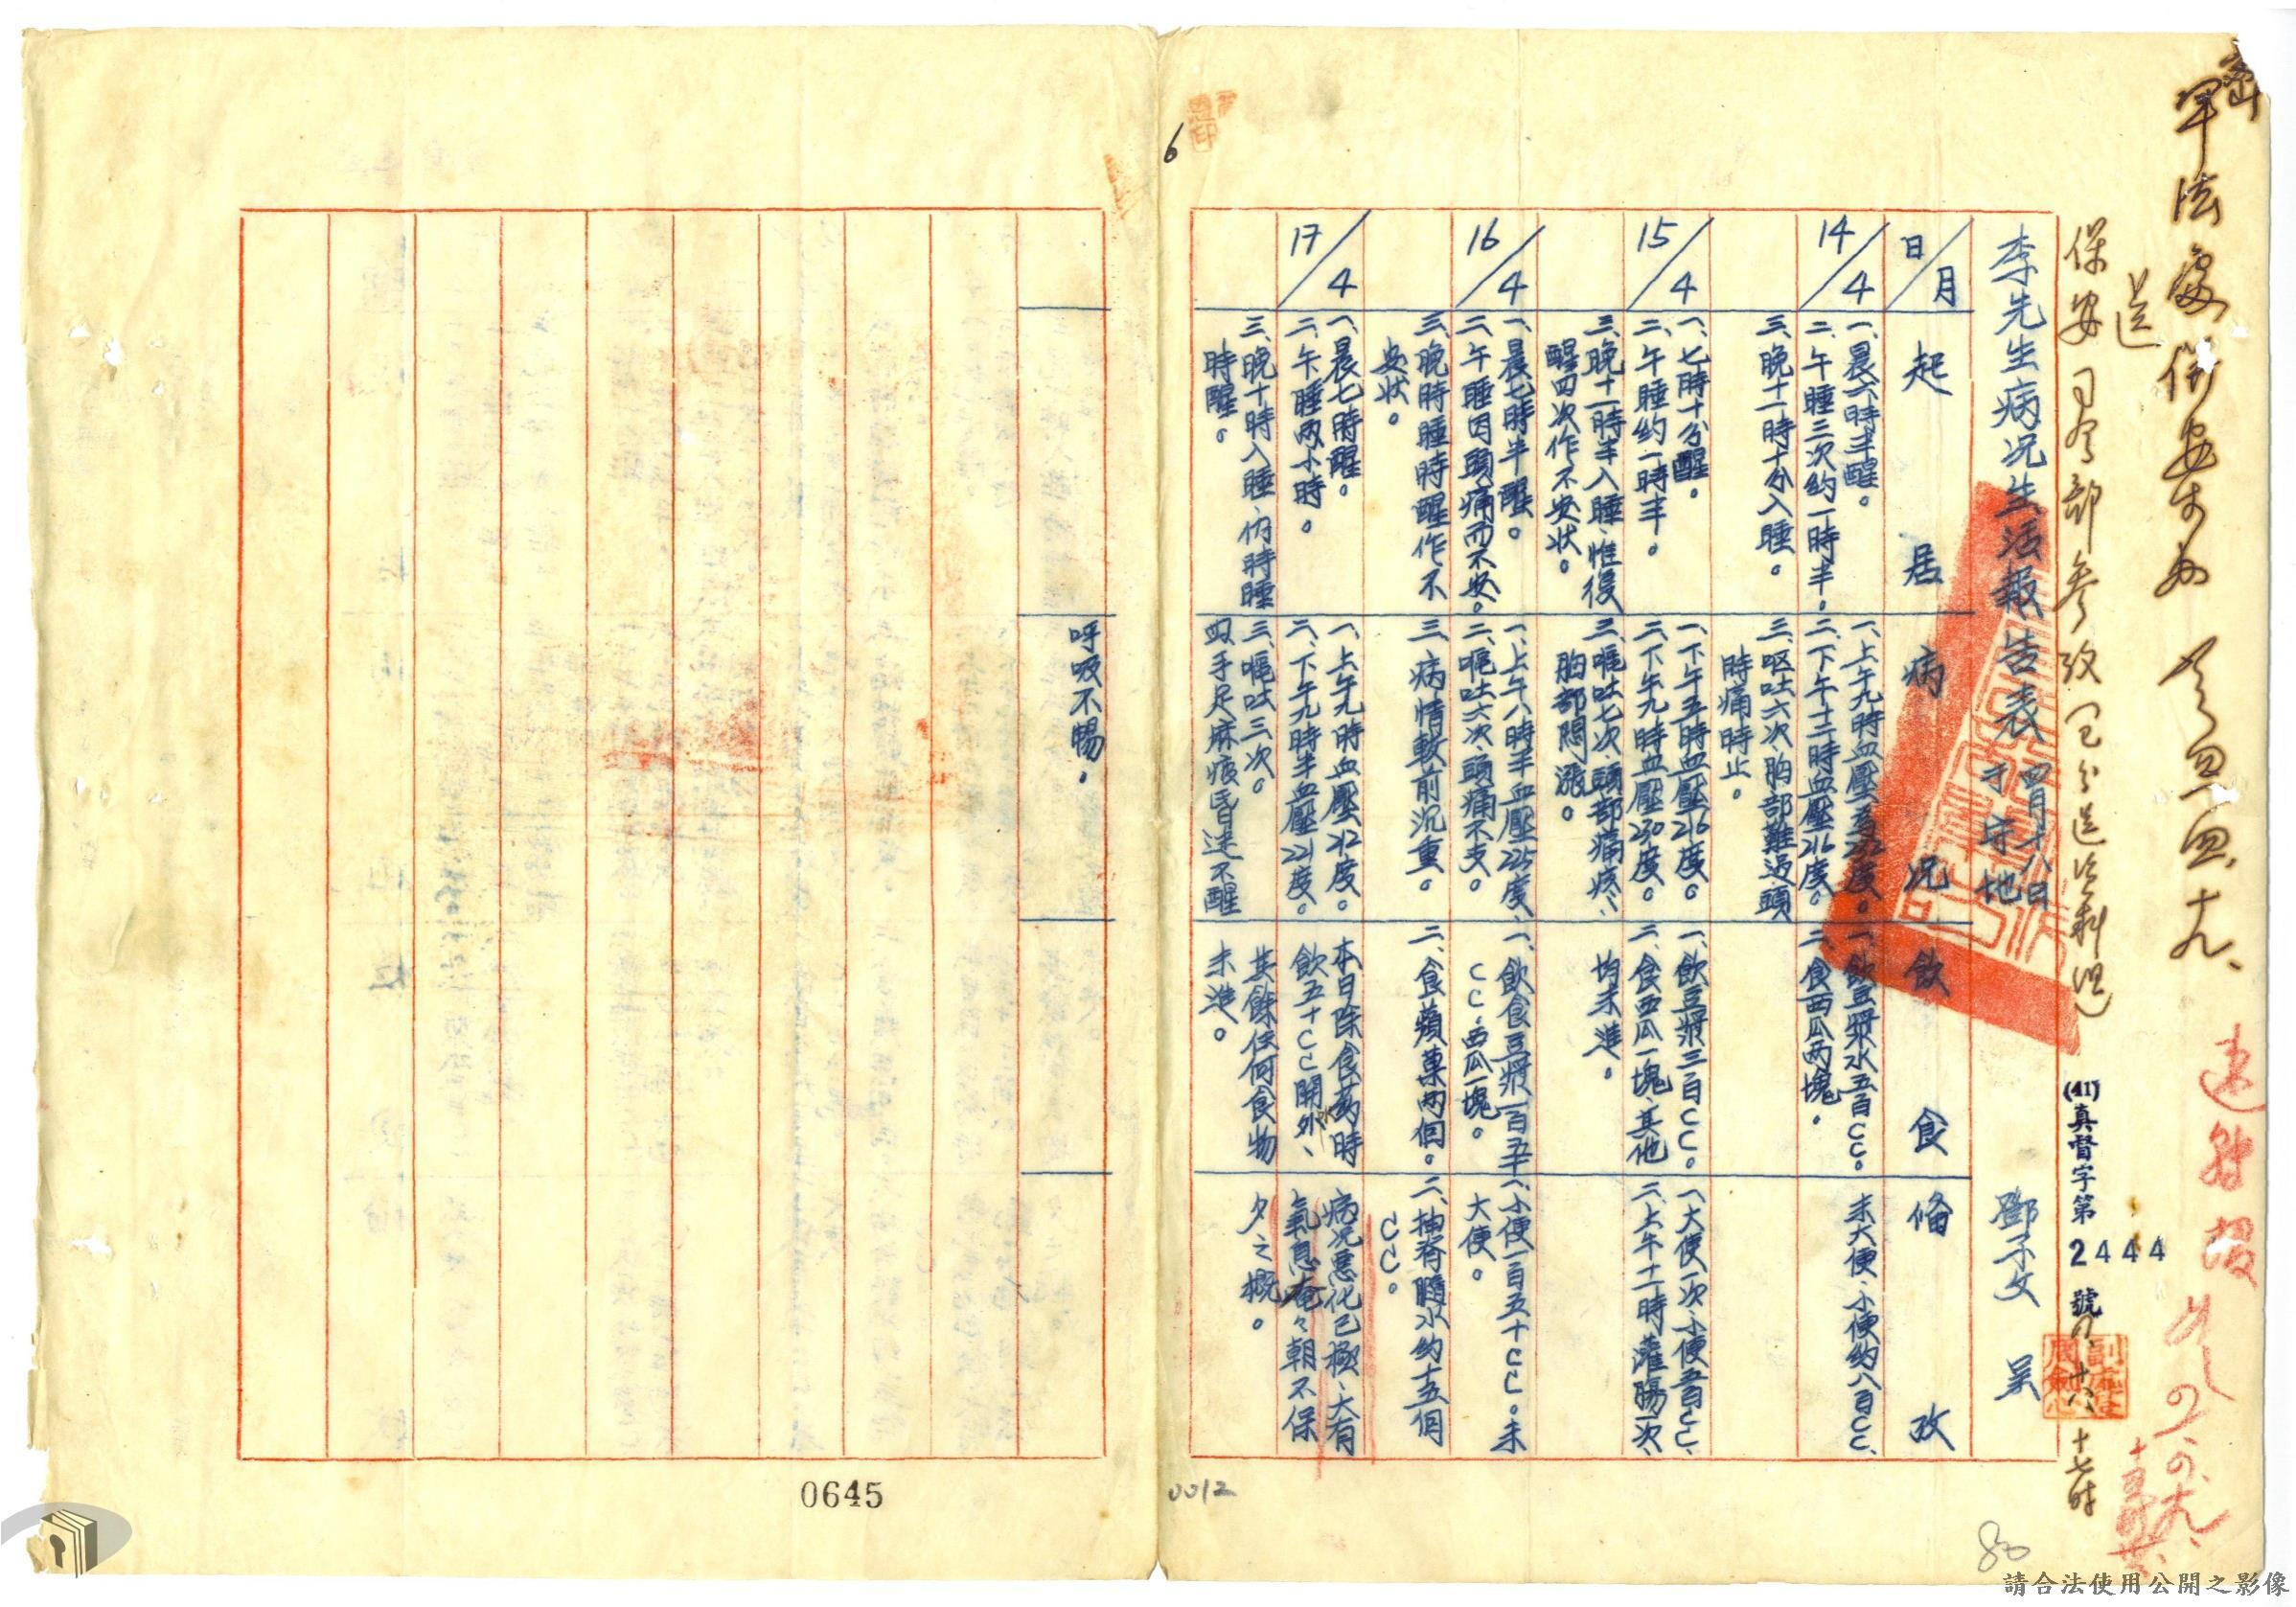 軍法處併案办
送
保安司令部參攷
李先生病況生活報告表 四月十八日
于守地
鄧子文 呈
(41)真督字第2444號
十七时
日/月 起居 病況 飲食 俻攷
14/4
一、晨六時半醒。
二、午睡三次約一時半。
三、晚十一時十分入睡。
二、下午十二時血壓216度。
三、呕吐六次、胸部難過、頭
時痛時止。
一、飲豆漿水五百CC。
二、食西瓜两塊。
未大便、小便約八百CC、
15/4
一、七時十分醒。
二、午睡約一時半。
三、晚十一時半入睡、惟後
醒四次作不安状。
一、下午五時血壓216度。
二、下午九時血壓230度。
三、嘔吐七次、頭部痛疼、
胸部悶漲。
一、飲豆漿三百CC。
二、食西瓜一塊、其他
均未進。
一、大便一次、小便五百CC、
二、上午十一時灌腸一次、
16/4
一、晨七時半醒。
二、午睡因頭痛而不安。
三、晚時睡時醒作不
安状。
一、上午八時半血壓225度、
二、嘔吐六次、頭痛不支。
三、病情較前沉重。
一、飲食豆漿一百五十
CC、西瓜一塊。
二、食蘋菓両個。
一、小便一百五十CC。未
大便。
二、抽脊髓水約十五個
CC。
17/4
一、晨七時醒。
二、午睡両小時。
三、晚十時入睡、俏時睡
時醒。
一、上午九時血壓212度。
二、下午九時半血壓221度。
三、嘔吐三次。
四、手足麻痕昏迷不醒
呼吸不暢。
本日除食葯時
飲五十CC開外、
其餘任何食物
未進。
病況惡化已極、大有
氣息奄々朝不保
夕之概。
6
0645
0012
80
請合法使用公開之影像